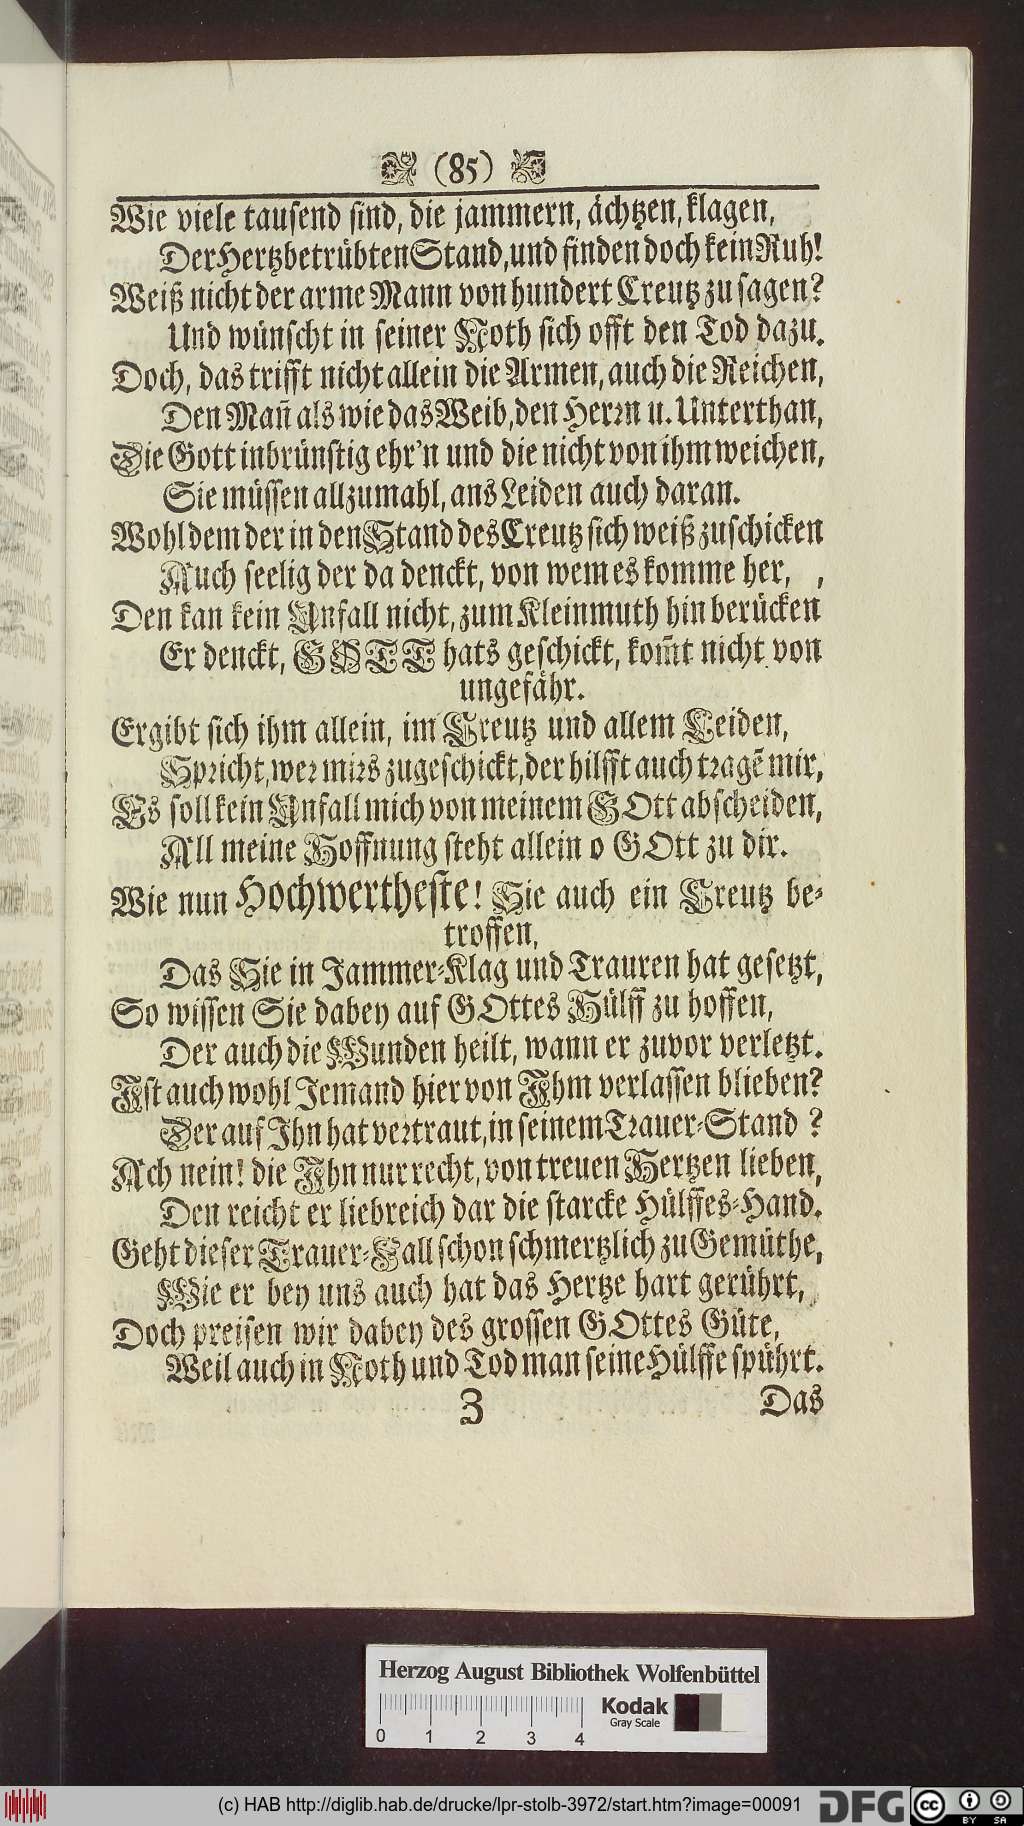 (85)
Wie viele tausend sind, die jammern, ächtzen, klagen,
Der Hertzbetrübten Stand, und finden doch kein Ruh!
Weiß nicht der arme Mann von hundert Creutz zu sagen?
Und wünscht in seiner Noth sich offt den Tod dazu.
Doch, das trifft nicht allein die Armen, auch die Reichen,
Den Mañ als wie das Weib, den Herrn u. Unterthan,
Die Gott inbrünstig ehr'n und die nicht von ihm weichen,
Sie müssen allzumahl, ans Leiden auch daran.
Wohl dem der in den Stand des Creutz sich weiß zuschicken
Auch seelig der da denckt, von wem es komme her, ,
Den kan kein Unfall nicht, zum Kleinmuth hin berücken
Er denckt, GOTT hats geschickt, kom̃t nicht von
ungefähr.
Ergibt sich ihm allein, im Creutz und allem Leiden,
Spricht, wer mirs zugeschickt, der hilfft auch tragẽ mir,
Es soll kein Unfall mich von meinem GOtt abscheiden,
All meine Hoffnung steht allein o GOtt zu dir.
Wie nun Hochwertheste! Sie auch ein Creutz be-
troffen,
Das Sie in Jammer-Klag und Trauren hat gesetzt,
So wissen Sie dabey auf GOttes Hülff zu hoffen,
Der auch die Wunden heilt, wann er zuvor verletzt.
Ist auch wohl Jemand hier von Ihm verlassen blieben?
Der auf Ihn hat vertraut, in seinem Trauer-Stand ?
Ach nein! die Ihn nur recht, von treuen Hertzen lieben,
Den reicht er liebreich dar die starcke Hülffes-Hand.
Geht dieser Trauer-Fall schon schmertzlich zu Gemüthe,
Wie er bey uns auch hat das Hertze hart gerührt,
Doch preisen wir dabey des grossen GOttes Güte,
Weil auch in Noth und Tod man seine Hülffe spührt.
3 Das
Herzog August Bibliothek Wolfenbüttel
Kodak
Gray Scale
0 1 2 3 4
(c) HAB http://diglib.hab.de/drucke/lpr-stolb-3972/start.htm?image=00091 DFG cc BY SA